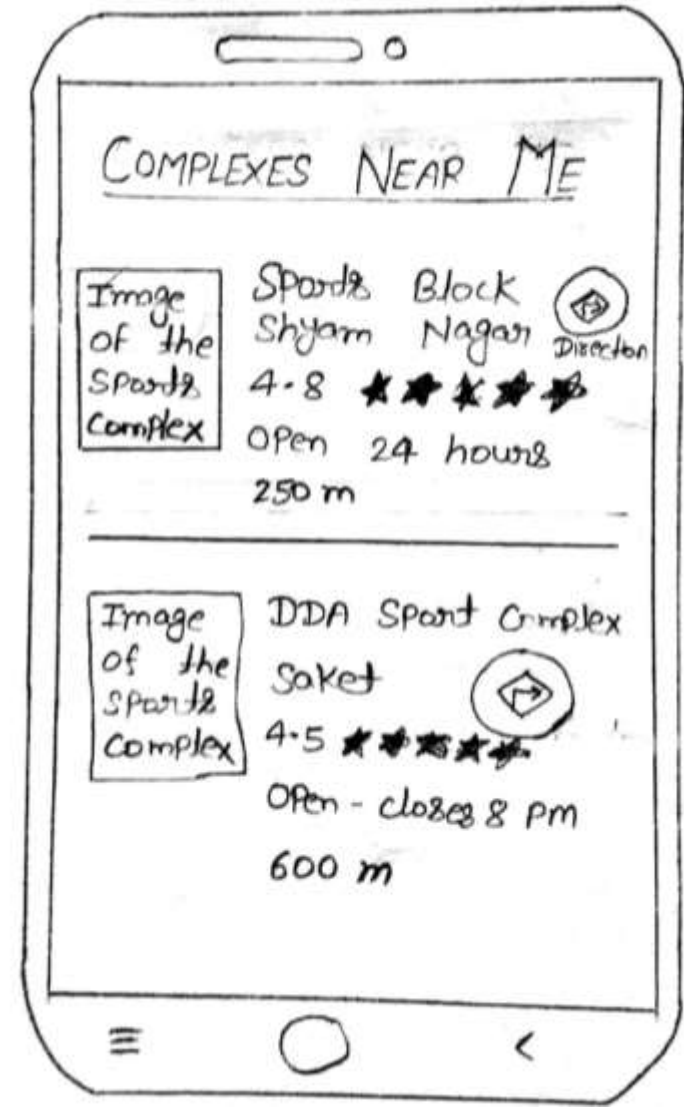 COMPLEXES NEAR ME
Image
of the
Sports
Complex
Sports Block
Shyam Nagar
Direction
4.8
Open 24 hours
250 m
Image
of the
Sports
Complex
DDA Sport Complex
Saket
4.5
Open - closes 8 pm
600 m